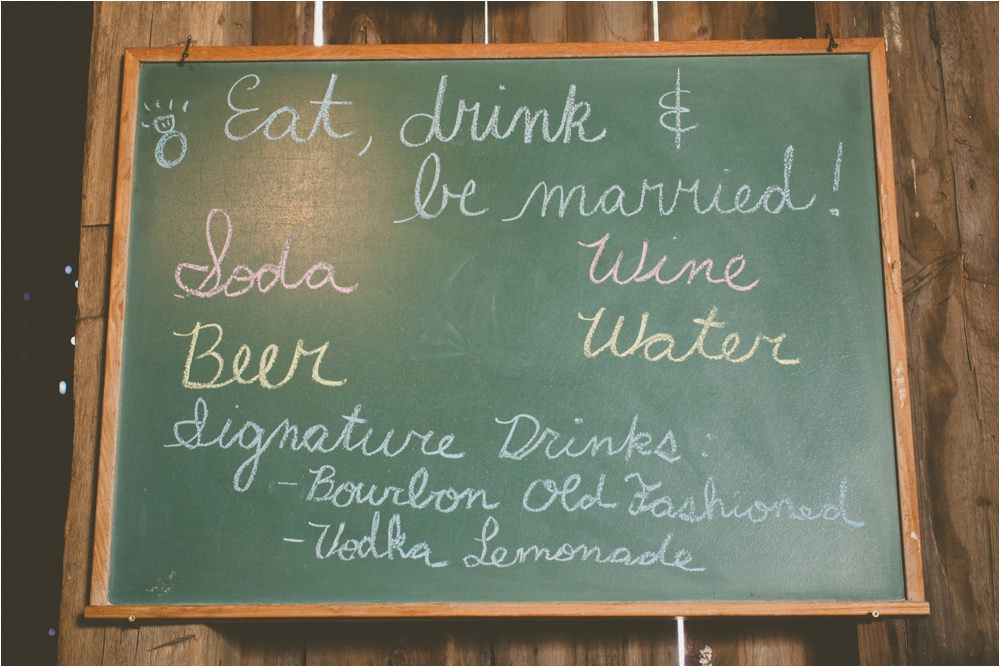 Eat, drink &
be married!
Soda Wine
Beer Water
Signature Drinks:
- Bourbon Old Fashioned
- Vodka Lemonade